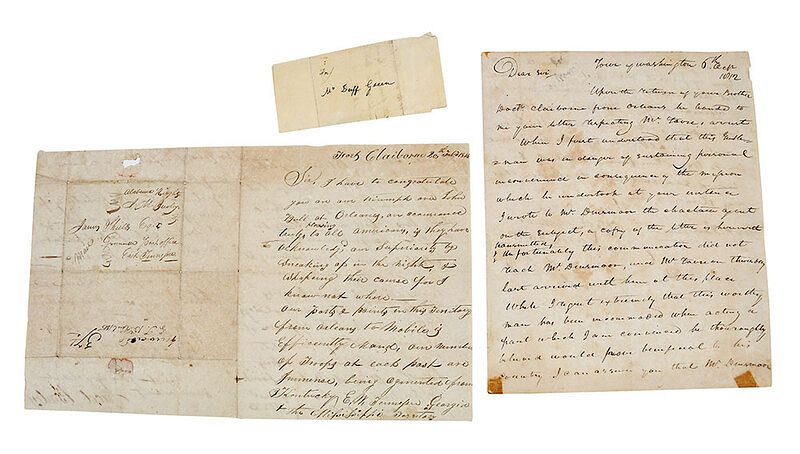 To/
Mr Duff Green
Fort Claiborne
Sir, I have to congratulate
you on our triumph over John
Bull at Orleans, an occurrence
truly pleasing to all Americans, & they have
acknowledgd our Superiority by
Sneaking up in the Night, &
their Canoe for I
know not where —
our posts & points in this Territory
from Orleans to Mobile is
Efficiently Mand, our number
of Troops at each post are
Immense, being Concentrd from
Kentucky E & W Tennessee Georgia
& the Mississippi Territory
Alabama Heights
James
Post office
East Tennessee
Dear Sir
Town of Washington 6th
1812
Upon the return of your Brother
Doctr Claiborne from Orleans he handed to
me your letter respecting Mr
When I first understood that this Gentle-
man was in danger of sustaining personal
inconvenience in consequence of the mission
which he undertook at your instance
I wrote to Mr Dinsmoor the Choctaw agent
on the subject, a copy of the letter is herewith
transmitted,
Unfortunately this communication did not
reach Mr Dinsmoor, and Mr on Thursday
last arrived with him at this place
While I regret extremely that this worthy
man has been incommoded when acting a
part which I am convinced he thoroughly
believed would prove beneficial to his
country I can assure you that Mr Dinsmoor